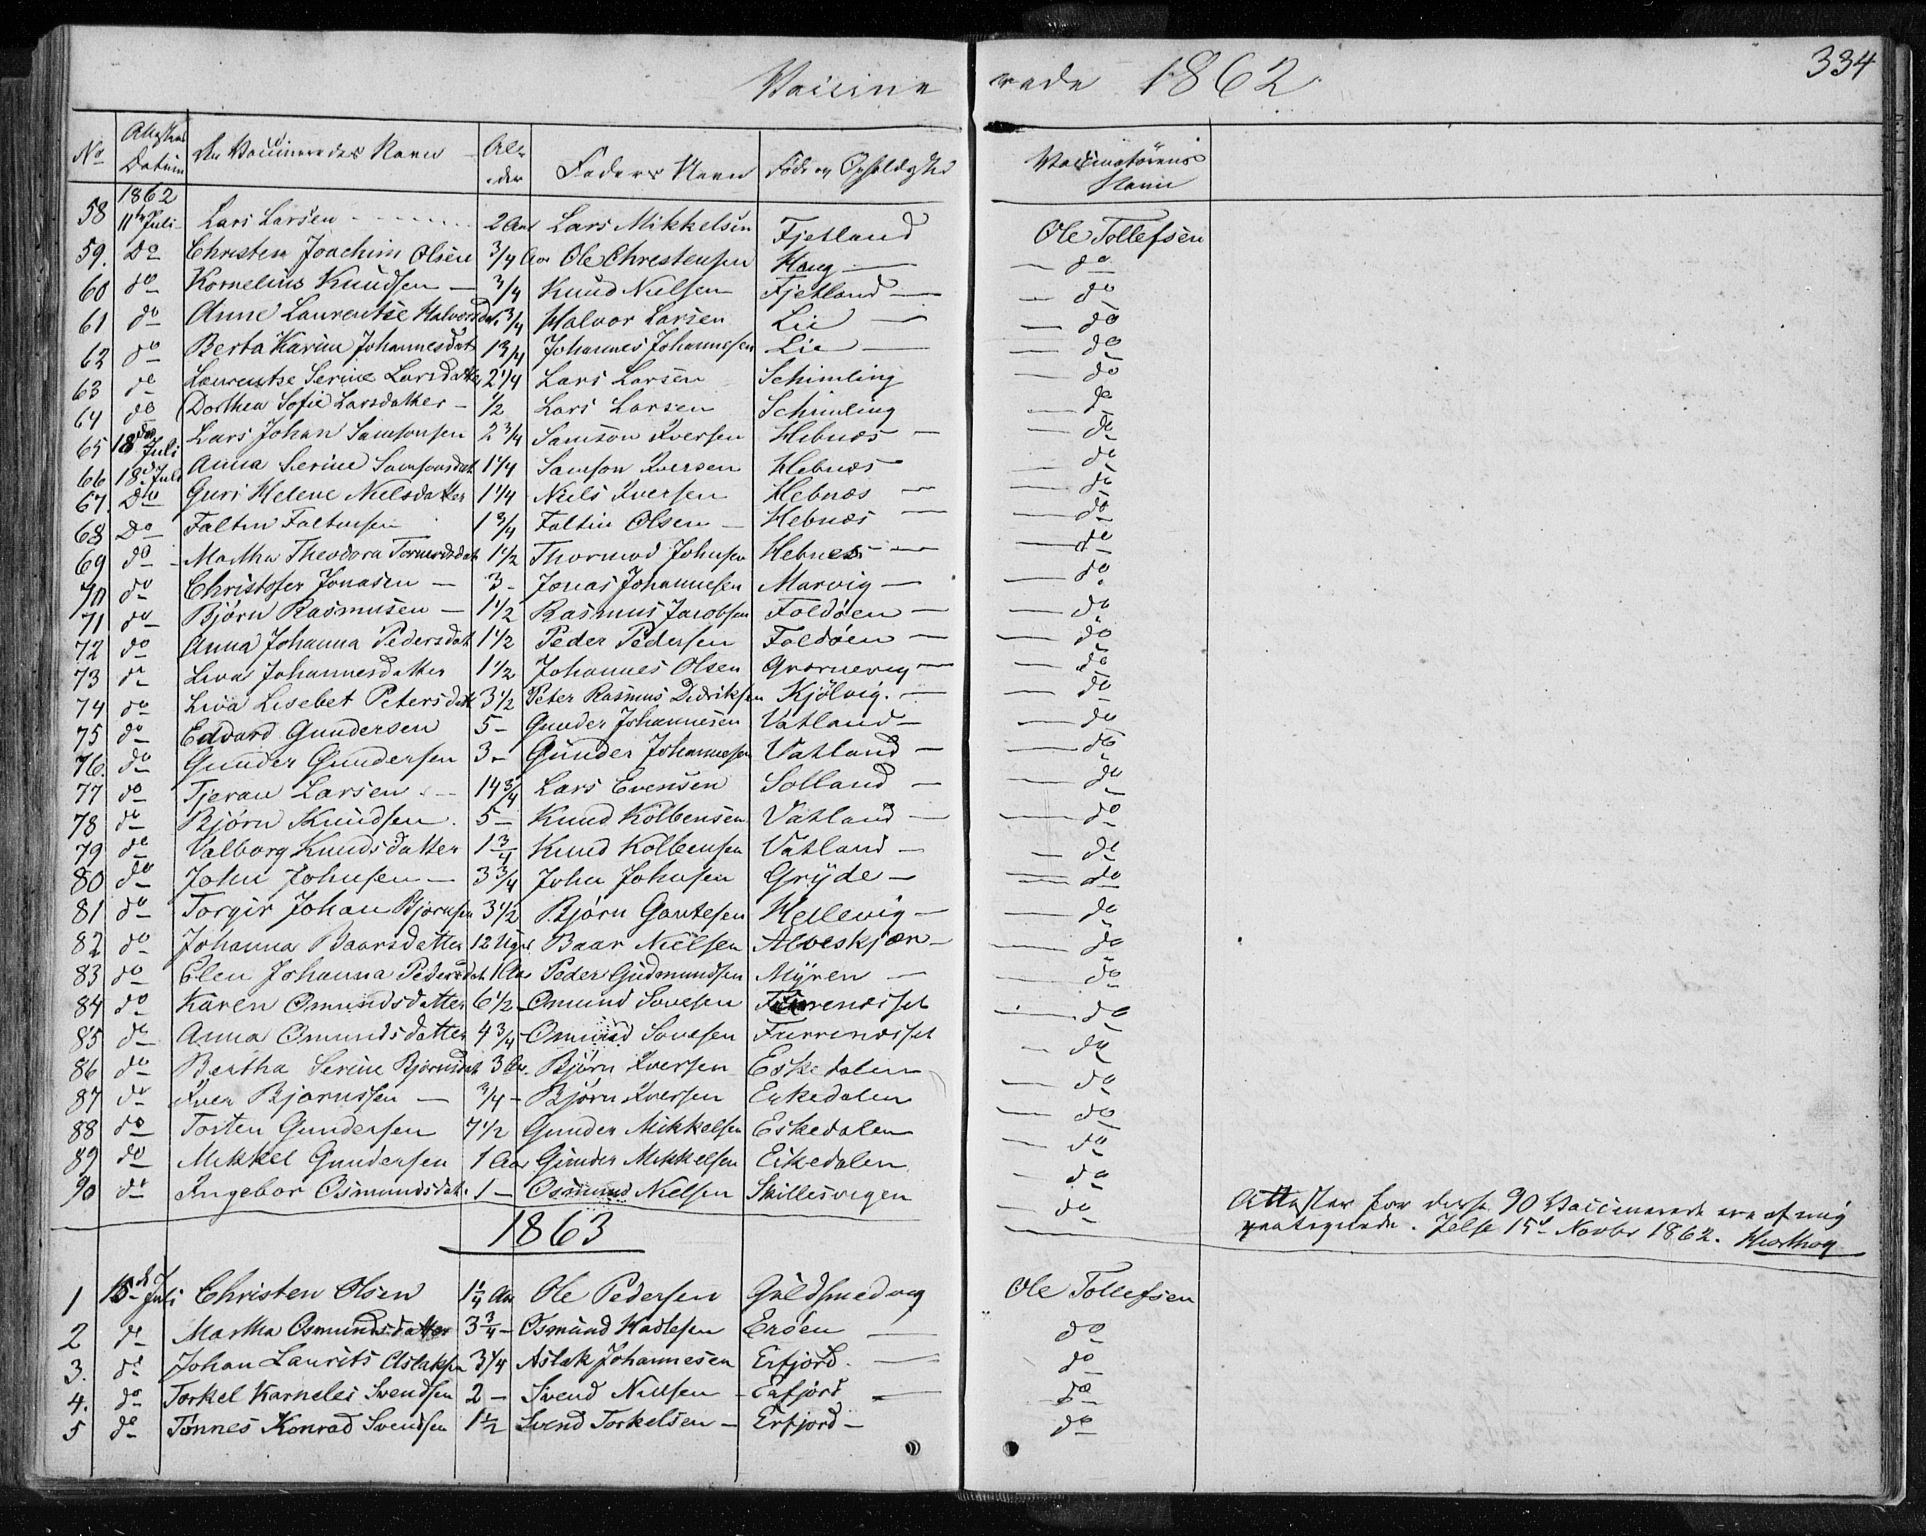 334
Vaccinerede 1862.
No Attestens Datum De Vaccineredes Navn Alder Faders Navn Føde og Opholdssted Vaccinatørens Navn
1862
58 11te Juli Lars Larsen - - - - - - 2 Aar Lars Mikkelsen Fjetland Ole Tollefsen
59. Do Christen Joachim Olsen 3/4 Aar Ole Christensen Haug — — do
60 do Kornelius Knudsen — 3/4 Knud Nielsen Fjetland — — do
61 do Anne Laurentse Halvorsdat. 3/4 Halvor Larsen Lie — — do
62 do Berta Karine Johannesdat 1 3/4 Johannes Johannesen Lie — — do
63 do Laurentse Serine Larsdatter 2 1/4 Lars Larsen Schimling — do
64 do Dorthea Sofie Larsdatter — 1/2 Lars Larsen Schimling — do
65 18de Juli Lars Johan Samsonsen 2 3/4 Samson Iversen Hebnæs — — do
66 18d Juli Anna Serine Samsonsdat 1 1/4 Samson Iversen Hebnæs — do
67. Do Guri Helene Nielsdatter 1 1/4 Niels Iversen Hebnæs — — do
68 Do Faltin Faltinsen 1 3/4 Faltin Olsen — Hebnæs — — do
69 do Martha Theodora Tormodsdat 1 1/2 Thormod Johnsen Hebnes — — do
70 do Christofer Jonasen — 3 - Jonas Johannesen Marvig — — do
71 do Bjørn Rasmusen — 1 1/2 Rasmus Jacobsen Foldøen — — do
72 do Anna Johanna Pedersdat 1 1/2 Peder Pedersen Foldøen — — do
73 do Liva Johannesdatter 1 1/2 Johannes Olsen — — do
74 do Liva Lisebet Petersdat 3 1/2 Peter Rasmus Didriksen Kjölvig. — — do
75 do Edvard Gundersen 5 - Gunder Johannesen Vatland — — do
76. do Gunder Gundersen 3 - Gunder Johannesen Vatland — — do
77 do Tjeran Larsen - - 14 3/4 Lars Evensen Solland — — do
78 do Bjørn Knudsen. 5 - Knud Kolbensen Vatland — — do
79 do Valborg Knudsdatter 1 3/4 Knud Kolbensen Vatland — — do
80 do John Johnsen — 3 3/4 John Johnsen Gryde — — do
81 do Torgir Johan Bjørnsen 3 1/2 Bjørn Gautesen Hellevig — — do
82 do Johanna Baarsdatter 12 Uger Baar Nielsen Alveskjær — — do
83 do Elen Johanna Pedersdat. 1 Aar Peder Gudmundsen Myren — — do
84 do Karen Osmundsdatter 6 1/2 Osmund Sovesen — do
85 do Anna Osmundsdatter 4 3/4 Osmund Sovesen — do
86 do Bertha Serine Bjørnsdat 3 Aar. Bjørn Iversen Eskedalen — do
87 do Iver Bjørnssen — 3/4 - Bjørn Iversen Eskedalen — do
88 do Tosten Gundersen 7 1/2 Gunder Mikkelsen Eskedalen — do
89 do Mikkel Gundersen 1 Aar Gunder Mikkelsen Eikedalen — do
90 do Ingebor Osmundsdat. 1 — Osmund Nielsen Skillesvigen — do
Attester for disse 90 Vaccinerede ere af mig
paategnede. Jelse 15d Novbr 1862.
1863
1 15de Juli Christen Olsen 1 1/4 Aar Ole Pedersen Guldsmedvig Ole Tollefsen
2 do Martha Osmundsdatter 3 3/4 - Osmund Hadlesen Erøen — do
3. do Johan Laurits Aslaksen 3/4 Aslak Johannesen Erfjord. — do
4. do Torkel Karneles Svendsen 2 — Svend Nielsen Erfjord — do
5 do Tønnes Konrad Svendsen 1 1/2 Svend Torkelsen — Erfjord — do